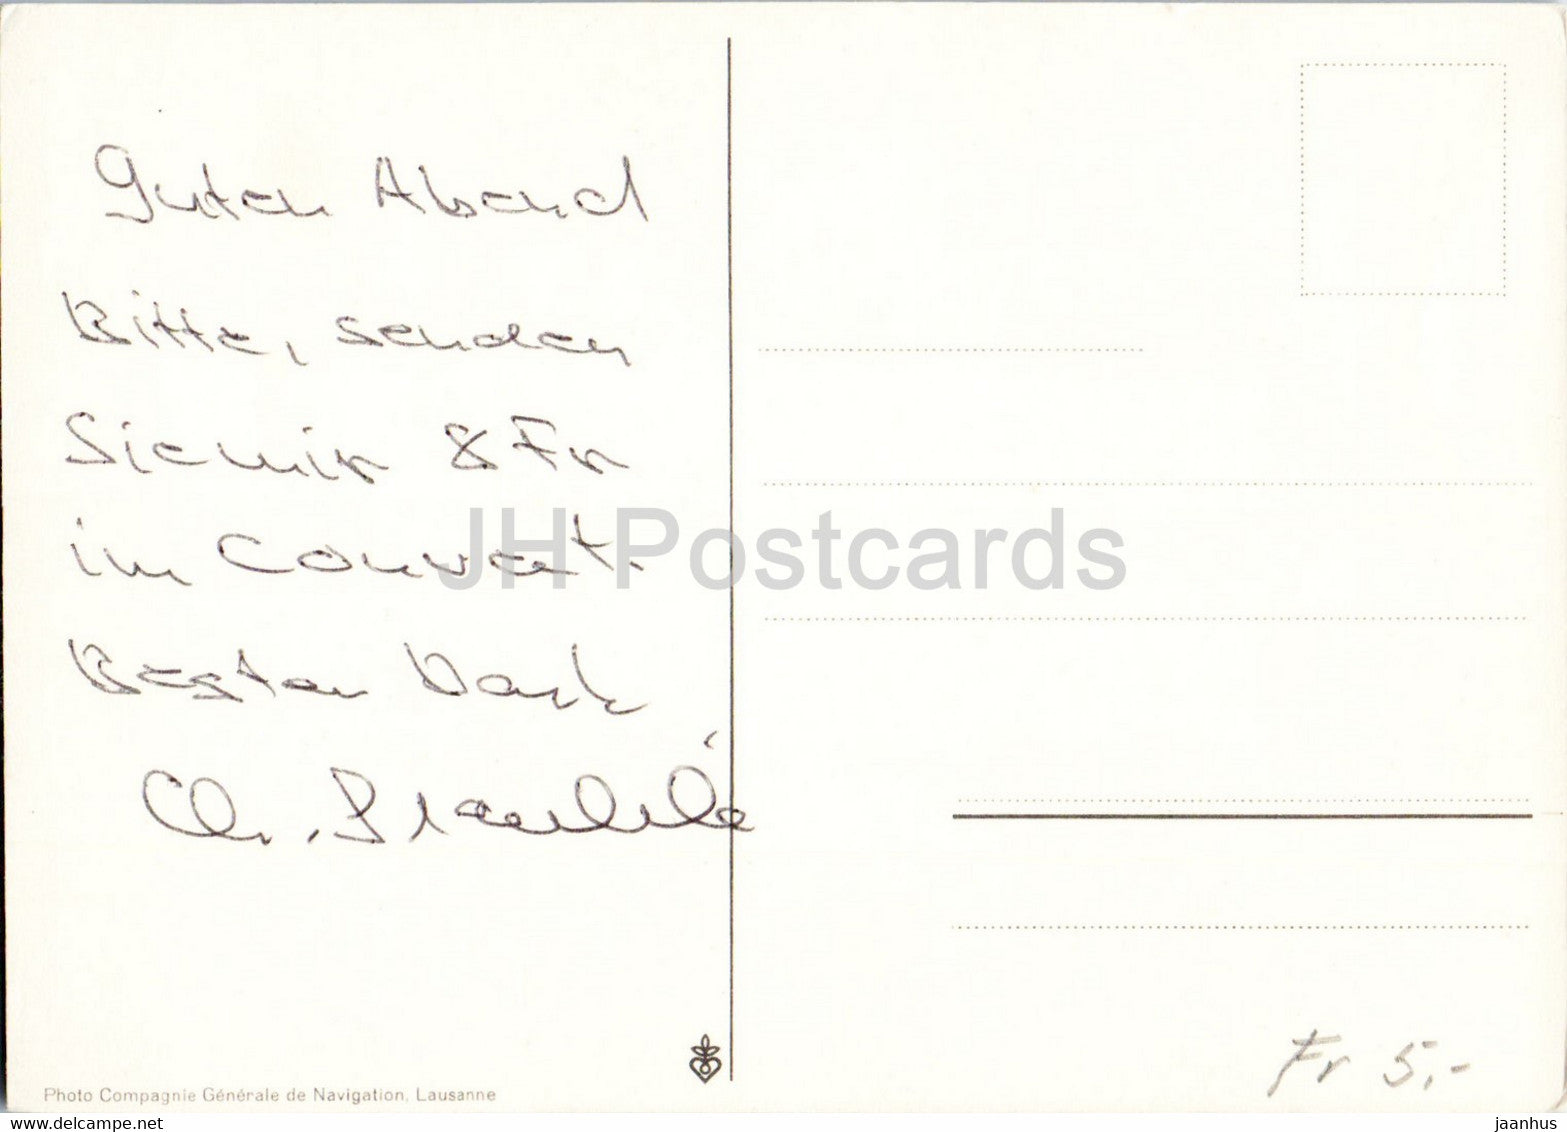 Guten Abend
Bitte, senden
Sie mir 8 Fr
in Couvert.
Besten Dank
Ch.
JH Postcards
Photo Compagnie Générale de Navigation, Lausanne
Fr 5,-
delcampe.net
jaanhus